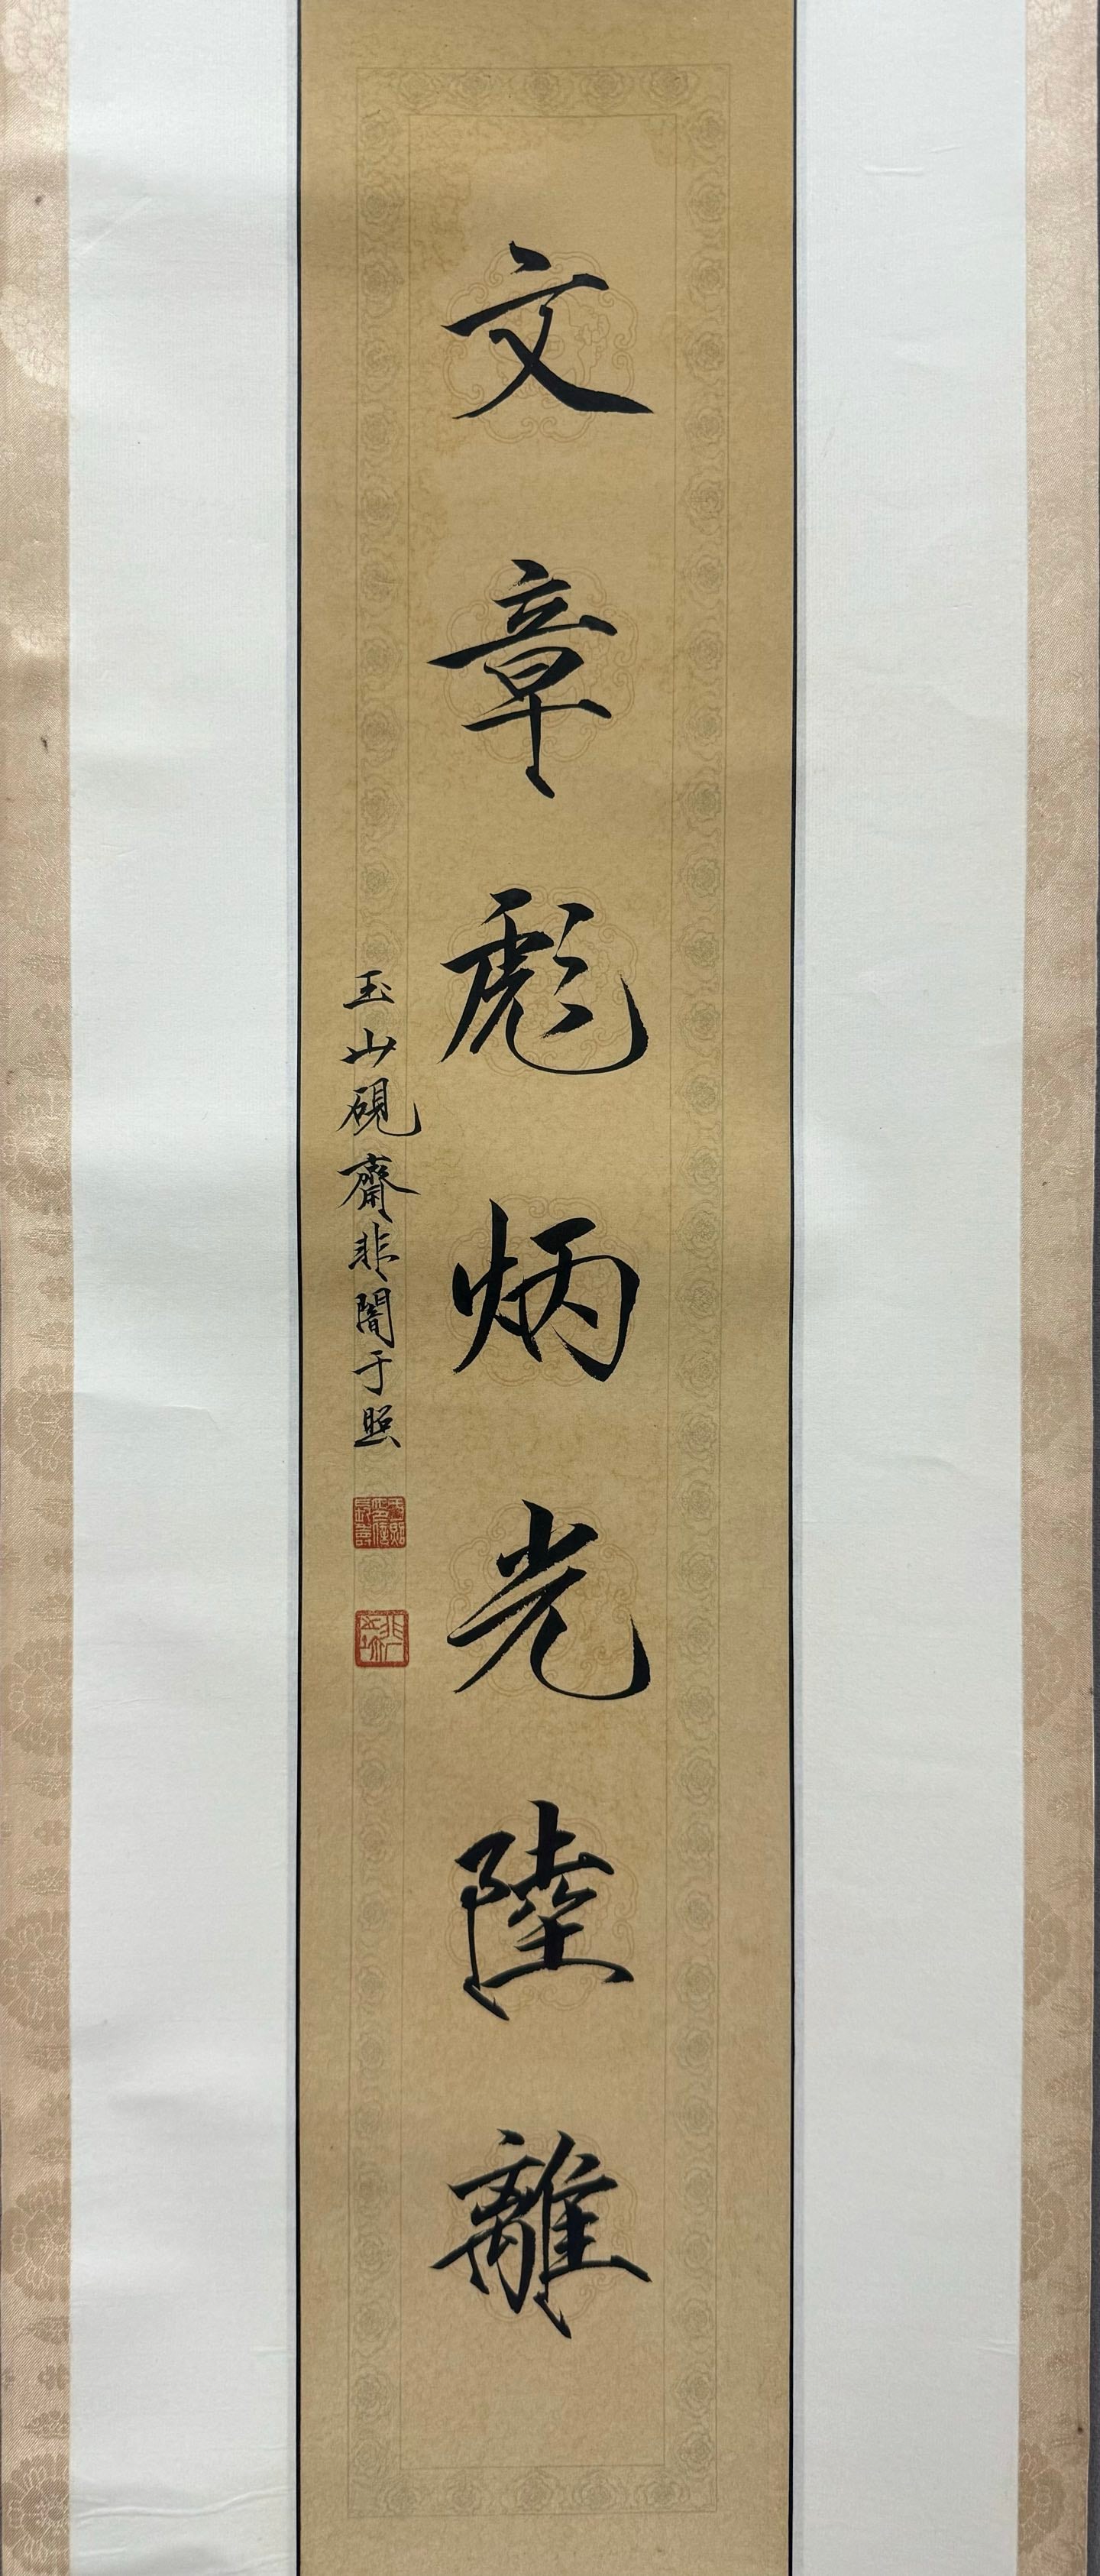 文章彪炳光陸離
玉山硯齋非闇于照